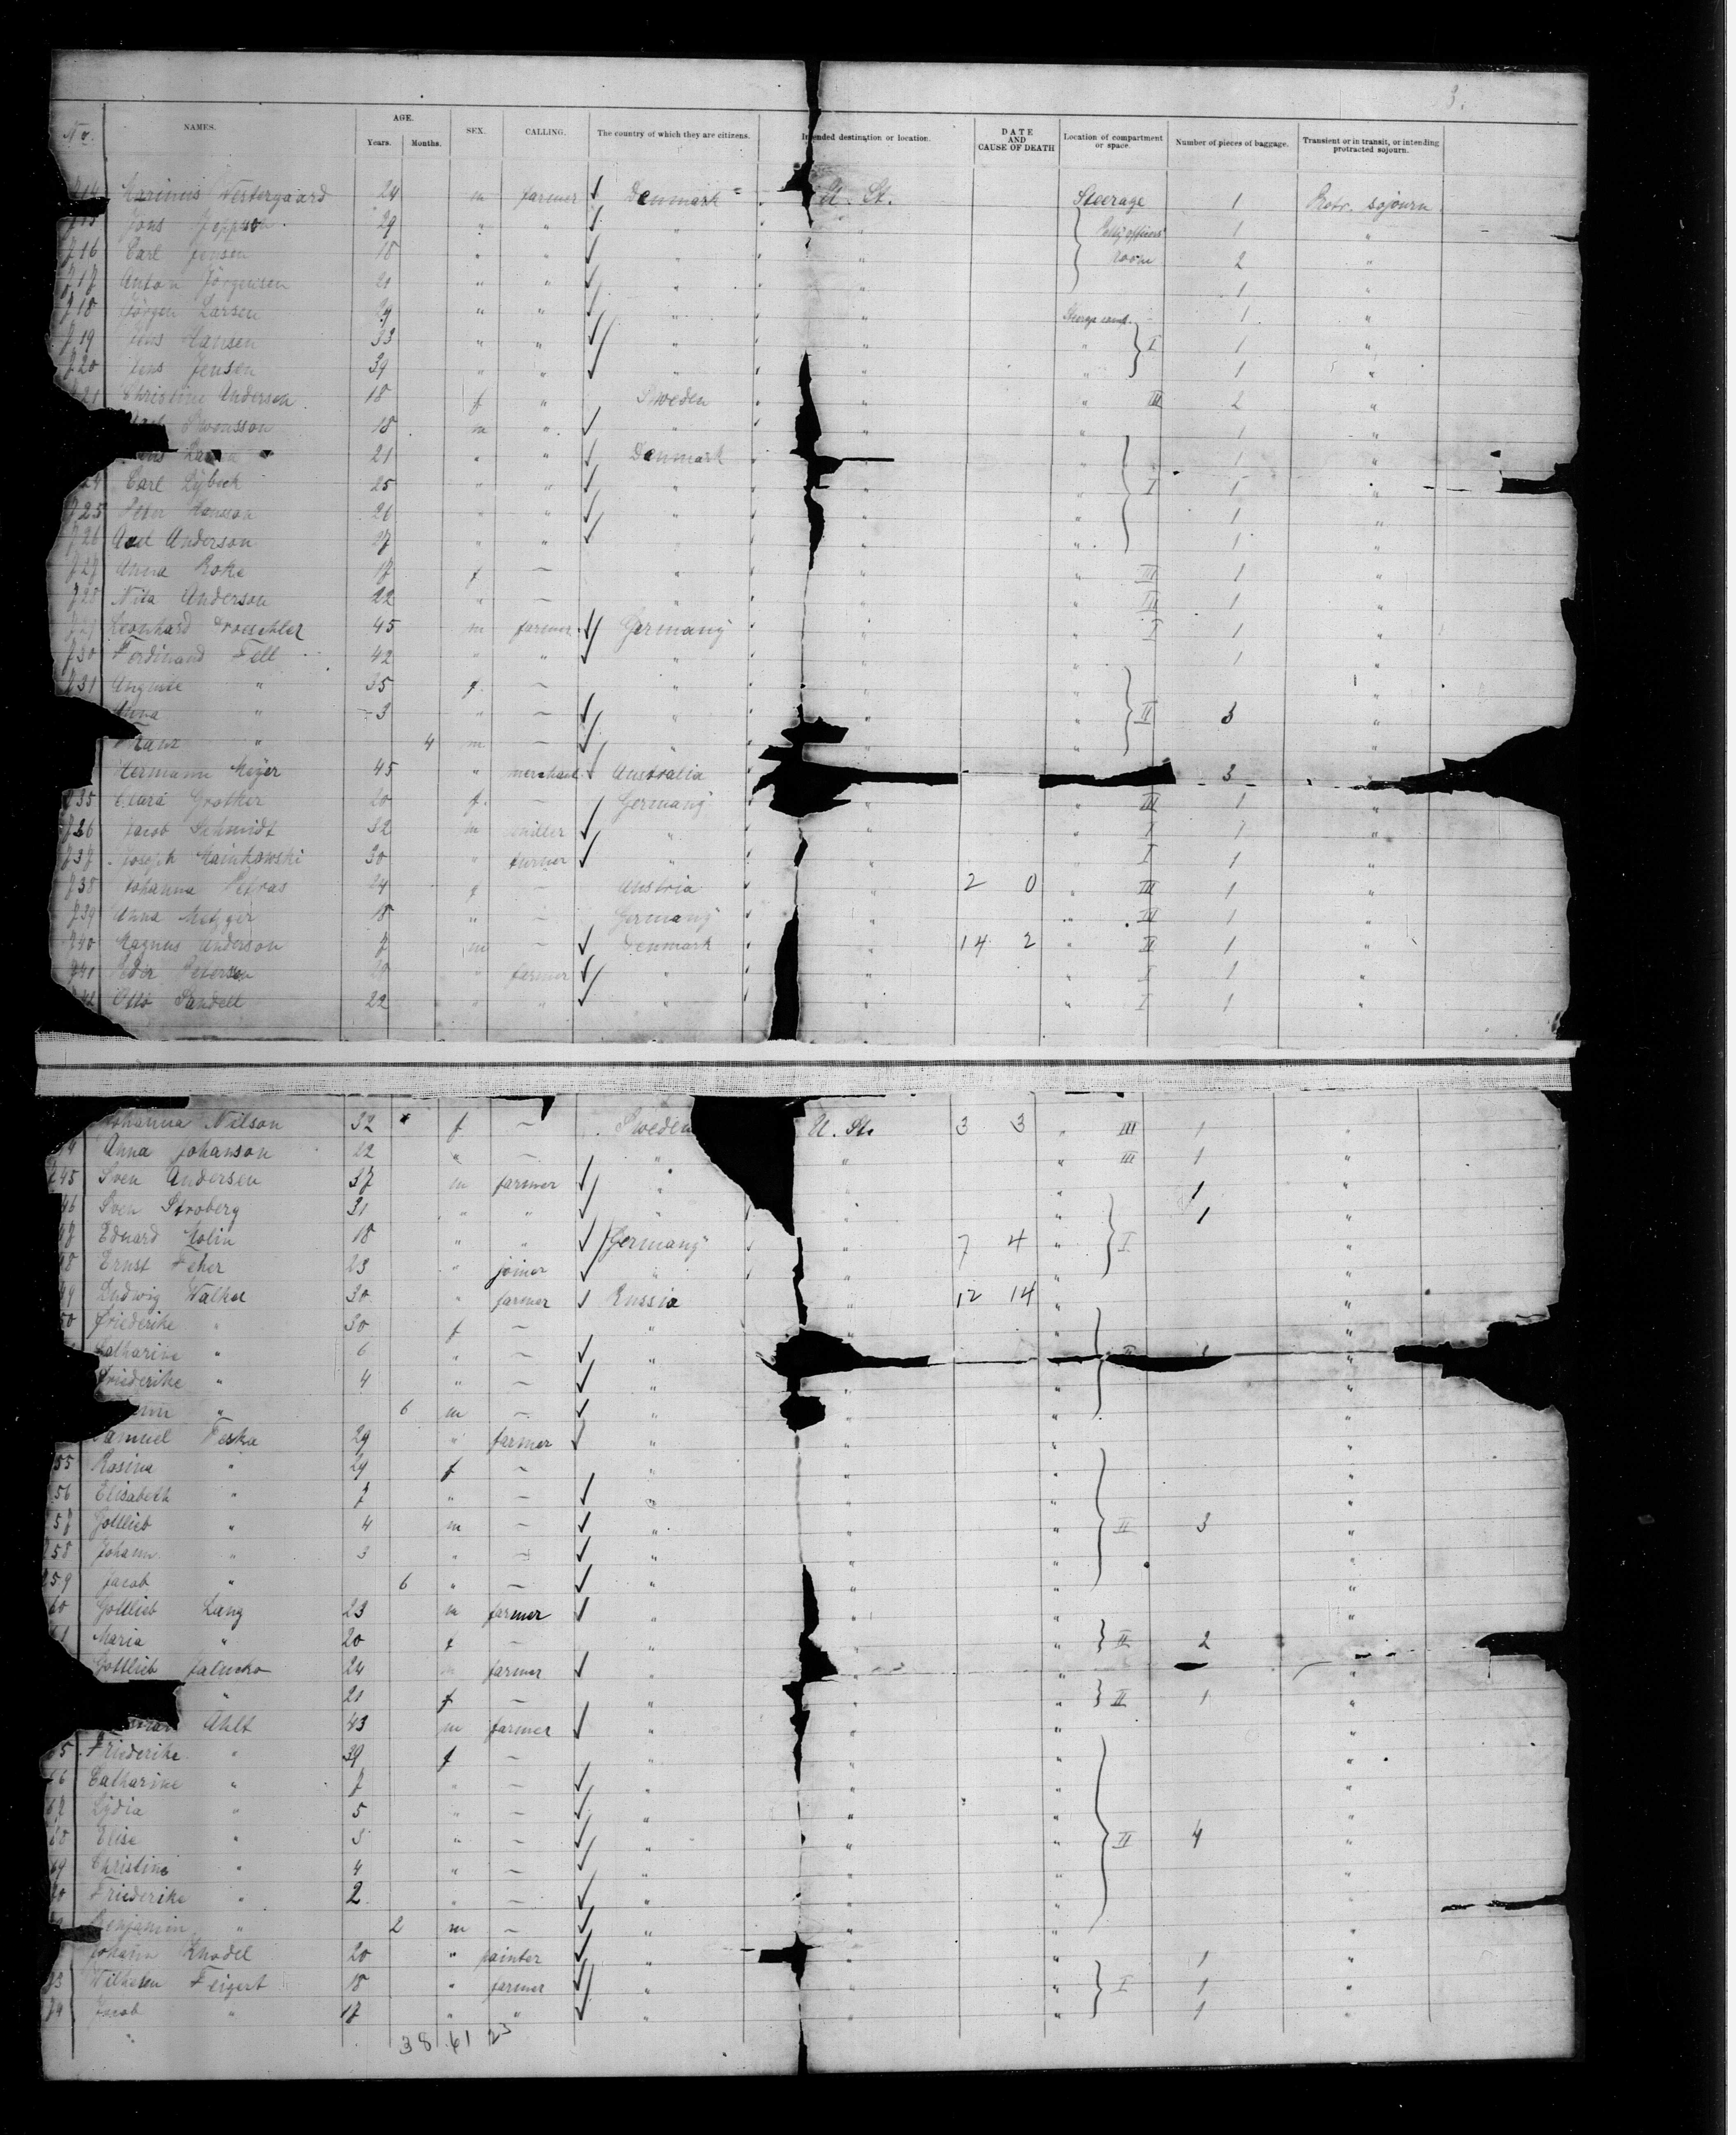 3.
No. NAMES. AGE. Years. Months. SEX. CALLING. The country of which they are citizens. Intended destination or location. DATE AND CAUSE OF DEATH Location of compartment or space. Number of pieces of baggage. Transient or in transit, or intending protracted sojourn.
714 Marinus Westergaard 24 m farmer ✓ Denmark " U. St. Steerage 1 Protr. sojourn
715 Jons Jeppson 29 " " ✓ " " 1 "
716 Carl Jensen 18 " " ✓ " " room 2 "
717 Anton Jörgensen 21 " " ✓ " " 1 "
718 Jörgen Larsen 29 " " ✓ " " Steerage comp. 1 "
719 Jens Hansen 33 " " ✓ " " " I 1 "
720 Jens Jensen 39 " " ✓ " " " 1 "
721 Christine Anderson 18 f " Sweden " " III 2 "
Swensson 18 m " ✓ " " " 1 "
21 " " ✓ Denmark " " 1 "
24 Carl Lybeck 25 " " ✓ " " " I 1 "
725 Peter Hansson 26 " " ✓ " " " 1 "
726 Axel Anderson 17 " " ✓ " " " 1 "
727 Anna Roke 17 f — " " " III 1 "
728 Nila Anderson 22 " — " " " III 1 "
729 Leonhard 45 m farmer ✓ Germany " " I 1 "
730 Ferdinand Fell 42 " " ✓ " " " 1 "
731 Auguste " 35 f — " " " "
Anna " 3 " — ✓ " " " II 3 "
Franz " 4 m — ✓ " " " "
Hermann Meyer 45 " merchant ✓ Australia 3
735 Clara Grother 20 f — Germany " " III 1 "
736 Jacob Schmidt 32 m miller ✓ " " " I 1 "
737 Joseph Mainkowski 30 " turner ✓ " " " I 1 "
738 Johanna Petras 24 f — Austria " 2 0 " III 1 "
739 Anna Metzger 18 " — Germany " " III 1 "
740 Magnus Anderson 7 m — ✓ Denmark " 14 2 " II 1 "
741 Peder Petersen 20 " farmer ✓ " " " I 1 "
742 Otto Sandell 22 " " ✓ " " " I 1 "
Johanna Nilson 32 f — Sweden U. St. 3 3 " III 1 "
44 Anna Johanson 22 " — " " " III 1 "
745 Sven Andersen 37 m farmer ✓ " " " 1 "
46 Sven Stroberg 31 " " ✓ " " " 1 "
47 Eduard Molin 18 " " ✓ Germany " 7 4 " I "
48 Ernst Feher 23 " joiner ✓ " " " "
49 Ludwig Walker 30 " farmer ✓ Russia " 12 14 " "
50 Friederike " 30 f — " " " "
Catharine " 6 " — ✓ " II "
Friederike " 4 " — ✓ " " " "
" 6 m — ✓ " " "
Samuel Feska 29 " farmer ✓ " " " "
55 Rosina " 29 f — " " " "
56 Elisabeth " 7 " — ✓ " " " "
57 Gottlieb " 4 m — ✓ " " " II 3 "
758 Johann " 3 " — ✓ " " " "
759 Jacob " 6 " — ✓ " " " "
60 Gottlieb Lang 23 m farmer ✓ " " " "
61 Maria " 20 f — " " " II 2 "
Gottlieb 24 m farmer ✓ " " " "
" 21 f — " " " II 1 "
Ahlt 43 m farmer ✓ " " " "
65 Friederike " 39 f — " " " "
66 Catharine " 7 " — ✓ " " " "
67 Lydia " 5 " — ✓ " " " "
68 Elise " 5 " — ✓ " " " II 4 "
69 Christine " 4 " — ✓ " " " "
70 Friederike " 2 " — ✓ " " " "
Benjamin " 2 m — ✓ " " " "
Johann Knodel 20 " painter ✓ " " " 1 "
73 Wilhelm Feigert 18 " farmer ✓ " " " I 1 "
74 Jacob " 17 " " ✓ " " " 1 "
38 61 23